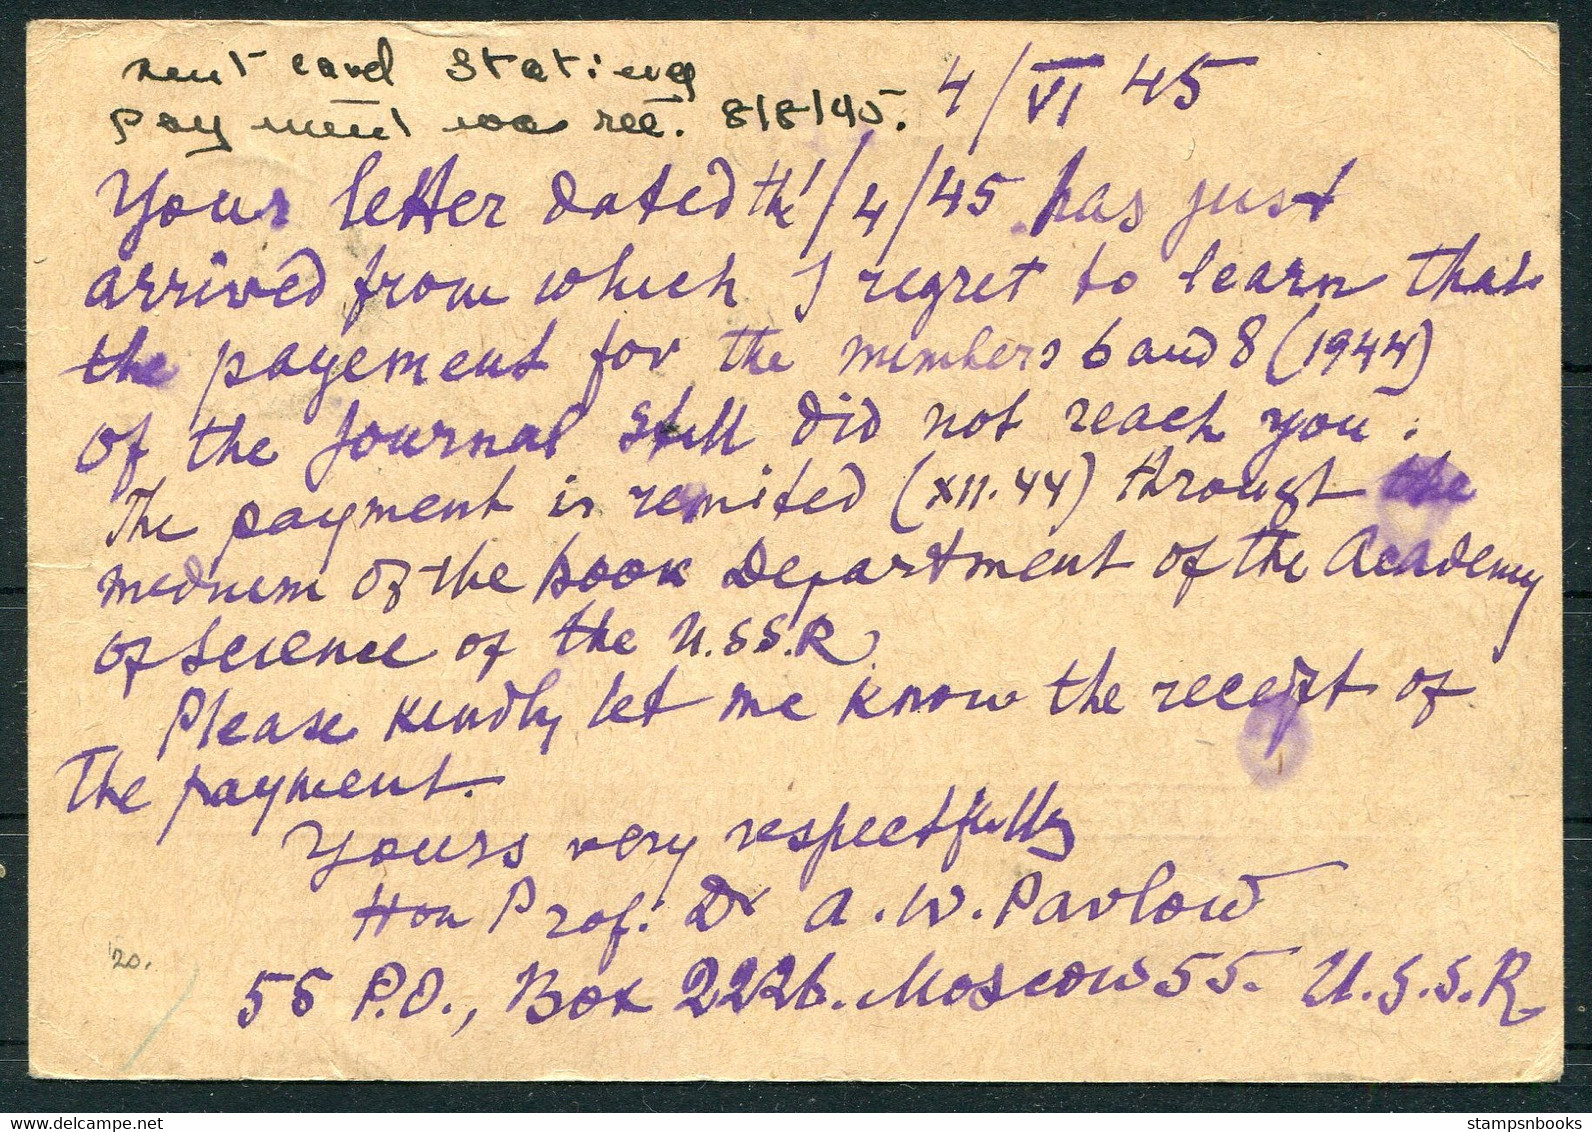 sent card stating
payment was rec. 8/8/45.
4/VI 45
Your letter dated th 1/4/45 has just
arrived from which I regret to learn that
the payement for the members 6 and 8 (1944)
of the Journal still did not reach you.
The payment is remited (XII.44) through the
medium of the book Department of the Academy
of Science of the U.S.S.R.
Please kindly let me know the receipt of
the payment.
Yours very respectfully
Hon Prof. Dr A. W. Pavlow
55 P.O., Box 2226. Moscow 55. U.S.S.R
20.
stampsnbooks.com